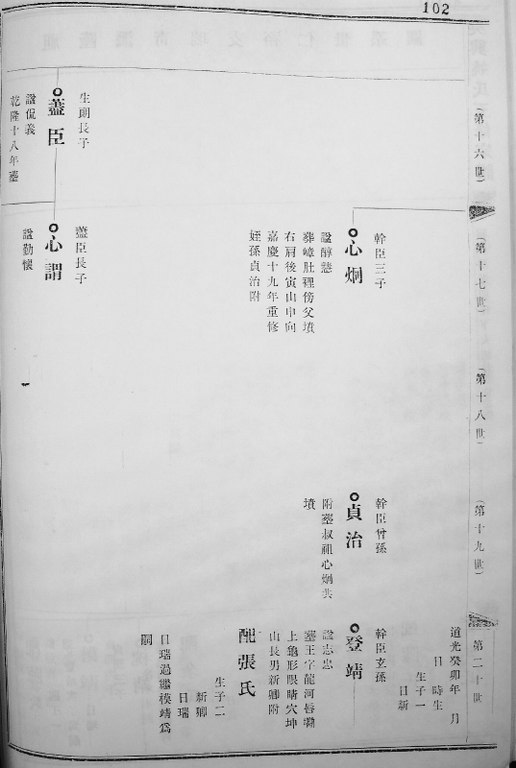 102
(第十六世)
(第十七世)
(第十八世)
(第十九世)
第二十世
生朗長子
藎臣
諡侃義
乾隆十八年塟
幹臣三子
心炯
諡醇慧
葬嶂肚裡傍父墳
右肩後寅山申向
嘉慶十九年重修
姪孫貞治附
藎臣長子
心謂
諡勤懷
幹臣曾孫
貞治
附塟叔祖心炯共
墳
道光癸卯年 月
日 時生
生子一
日新
幹臣玄孫
登靖
諡志忠
塟王字龍河唇
上龜形眼睛穴坤
山艮男新卿附
配張氏
生子二
新卿
日瑞
日瑞過繼模靖為
嗣